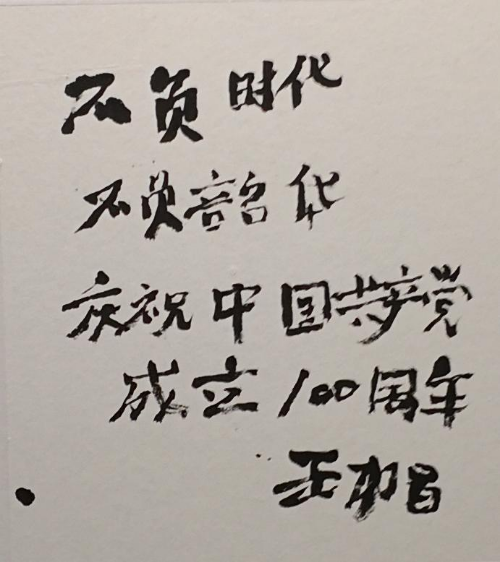 不负时代
不负韶华
庆祝中国共产党
成立100周年